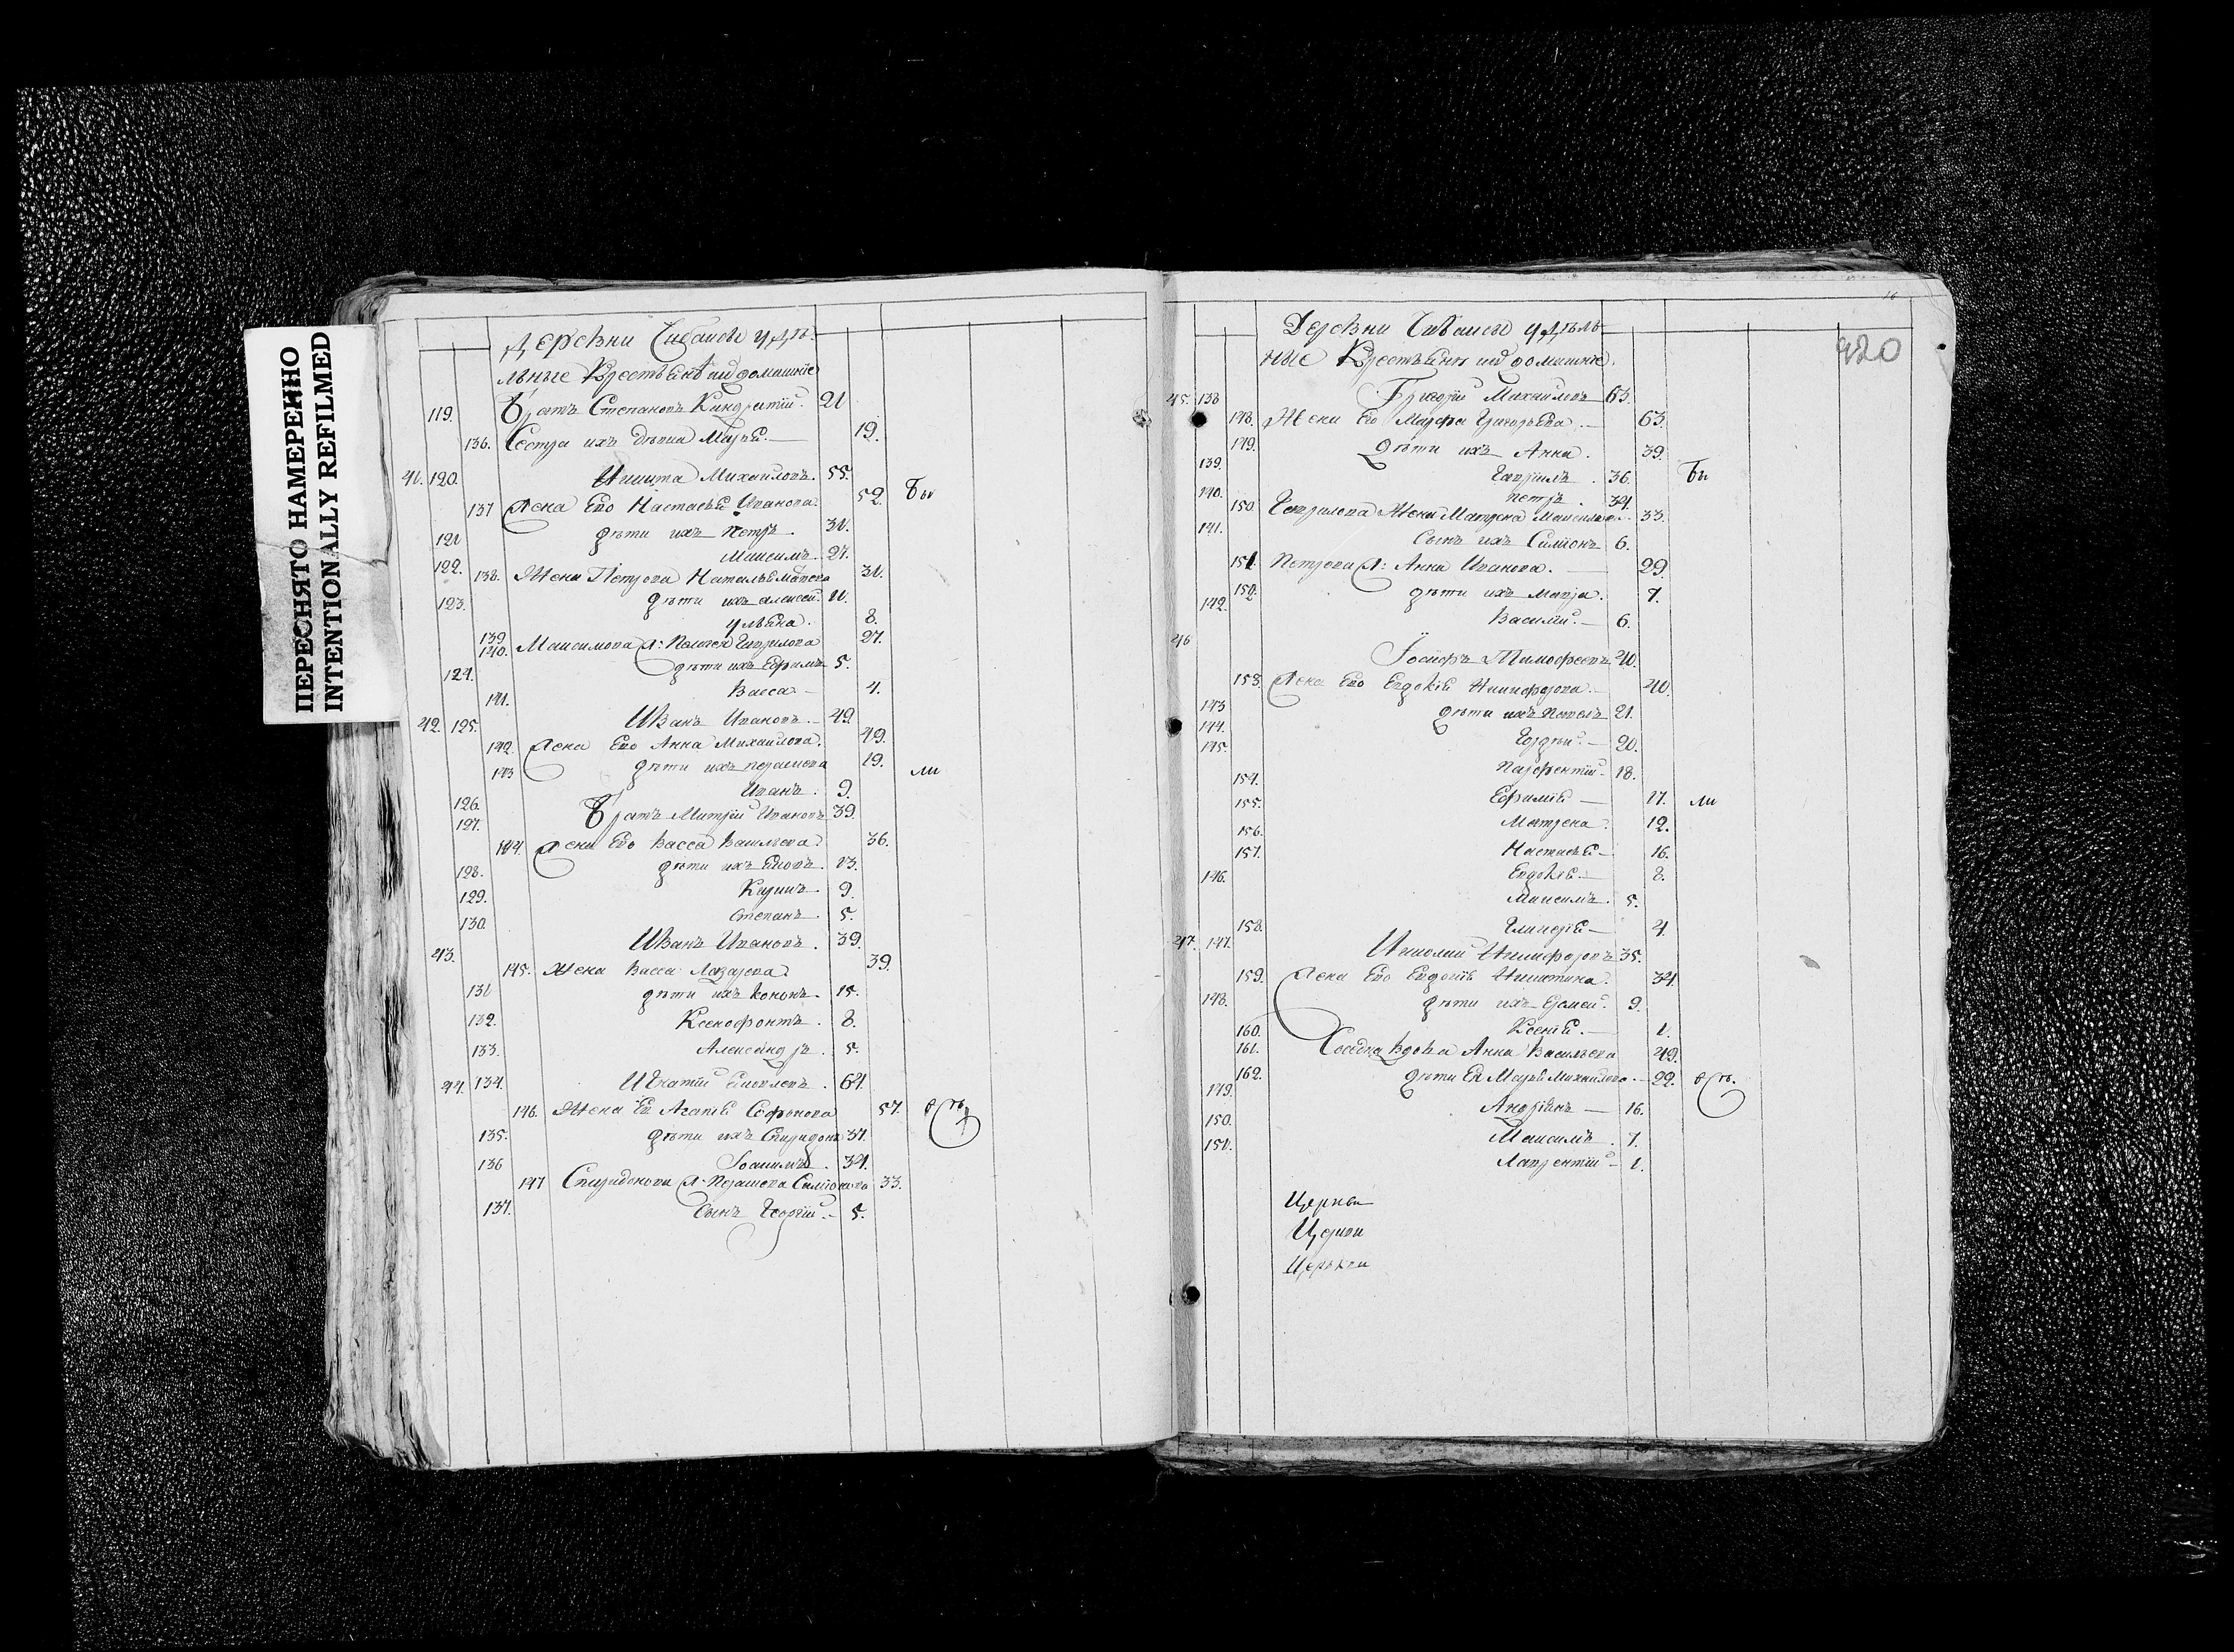 ПЕРЕСНЯТО НАМЕРЕННО
INTENTIONALLY REFILMED
Деревни удѣ-
льные Крестьяне домашніе
119. Братъ Степановъ Кондратіи 21
136. Сестра ихъ Марья 19.
41. 120. Никита Михаиловъ 55.
137 Жена Ево Настасья Иванова 52. бы
121 дѣти ихъ Петръ 31.
122. Максимъ 27.
138. Жена Петрова Наталья 31.
123. дѣти ихъ Алексеи 11.
139 ульяна. 8.
140. Максимова Ж: Гаврилова 27.
124. дѣти ихъ Ефимъ 5.
141. Васса 4.
42. 125. Иванъ Ивановъ 49.
142. Жена Ево Анна Михаилова. 49.
143 дѣти ихъ 19. ли
126. Иванъ 9.
127. Братъ Митріи Ивановъ 39.
144. Жена Ево Васса Васильева 36.
128. дѣти ихъ 13.
129. 9.
130. Степанъ 5.
43. Иванъ Ивановъ 39.
145. Жена Васса Лазарева 39.
131 дѣти ихъ Кононъ 15.
132. Ксенофонтъ 8.
133. Александръ 5.
44. 134. Игнатіи 64.
146. Жена Ев Агапія Софонова 57.
135. дѣти ихъ Спиридонъ 37.
136 Іоакимъ 34.
147 Спиридонова Ж: 33.
137. Сынъ Георгіи 5.
16
420
Деревни удѣль-
ные Крестьяне домашніе
45. 138 Григоріи Михаиловъ 63.
148. Жена Ево Марфа Григорьева 63.
149. дѣти ихъ Анна 39.
139. Гавріилъ 36. бы
140. Петръ 34.
150 Гаврилова Жена Матрена 33.
141. Сынъ ихъ Симіонъ 6.
151 Петрова Ж: Анна Иванова 29.
152. дѣти ихъ Марѳа 7.
142. Василіи 6.
46 Іосифъ Тимофеевъ 40.
153. Жена Ево Евдокія Никифорова 40.
143 дѣти ихъ Павелъ 21.
144. Гордѣи 20.
145. Парфентіи 18.
154. Ефимія 17. ли
155. Матрена 12.
156. Настасья 16.
157. Евдокія 8.
146. Максимъ 5.
158. Гликерія 4.
47. 147. Николаи Никифоровъ 35.
159. Жена Ево Евдокія Никитина 34.
148. дѣти ихъ 9.
160. Ксенія 1.
161. Соседка Вдова Анна Васильева 49.
162. дѣти Ея Марья Михаилова 22.
149. Андріянъ 16.
150. Максимъ 7.
151. Лаврентіи 1.
Церкви
Церкви
Церькви